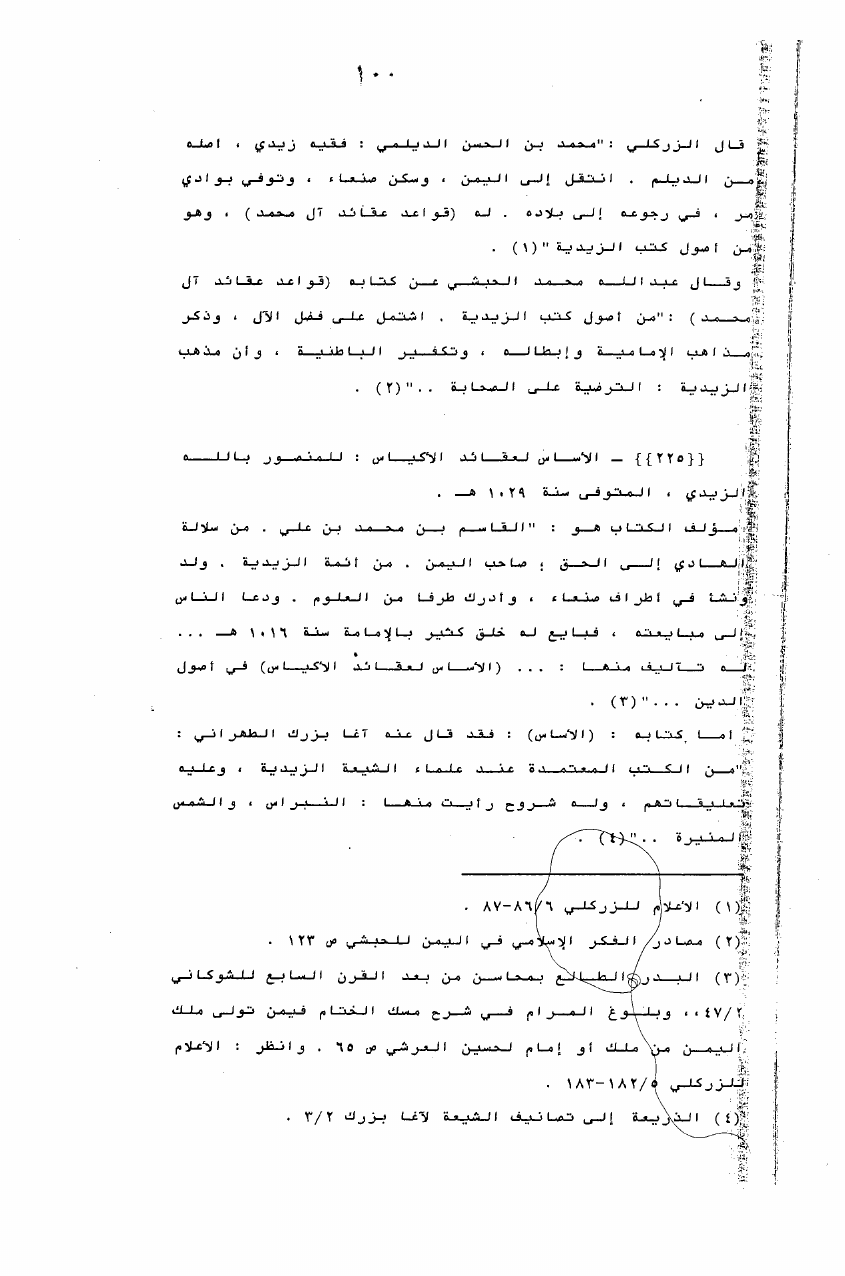 ١٠٠
قال الزركلي : "محمد بن الحسن الديلمي : فقيه زيدي ، أصله
من الديلم . انتقل إلى اليمن ، وسكن صنعاء ، وتوفي بوادي
مر ، في رجوعه إلى بلاده . له (قواعد عقائد آل محمد) ، وهو
من أصول كتب الزيدية "(١) .
وقال عبدالله محمد الحبشي عن كتابه (قواعد عقائد آل
محمد) : "من أصول كتب الزيدية . اشتمل على فضل الآل ، وذكر
مذاهب الإمامية وإبطاله ، وتكفير الباطنية ، وأن مذهب
الزيدية : الترضية على الصحابة .."(٢) .
{{٢٢٥}} - الأساس لعقائد الأكياس : للمنصور بالله
الزيدي ، المتوفى سنة ١٠٢٩ هـ .
مؤلف الكتاب هو : "القاسم بن محمد بن علي . من سلالة
الهادي إلى الحق ؛ صاحب اليمن . من أئمة الزيدية . ولد
ونشأ في أطراف صنعاء ، وأدرك طرفا من العلوم . ودعا الناس
إلى مبايعته ، فبايع له خلق كثير بالإمامة سنة ١٠١٦ هـ ...
له تآليف منها : ... (الأساس لعقائد الأكياس) في أصول
الدين ..."(٣) .
أما كتابه : (الأساس) : فقد قال عنه آغا بزرك الطهراني :
"من الكتب المعتمدة عند علماء الشيعة الزيدية ، وعليه
تعليقاتهم ، وله شروح رأيت منها : النبراس ، والشمس
المنيرة .."(٤) .
(١) الأعلام للزركلي ٨٦/٦-٨٧ .
(٢) مصادر الفكر الإسلامي في اليمن للحبشي ص ١٢٣ .
(٣) البدر الطالع بمحاسن من بعد القرن السابع للشوكاني
٤٧/٢،، وبلوغ المرام في شرح مسك الختام فيمن تولى ملك
اليمن من ملك أو إمام لحسين العرشي ص ٦٥ . وانظر : الأعلام
للزركلي ١٨٢/٥-١٨٣ .
(٤) الذريعة إلى تصانيف الشيعة لآغا بزرك ٣/٢ .